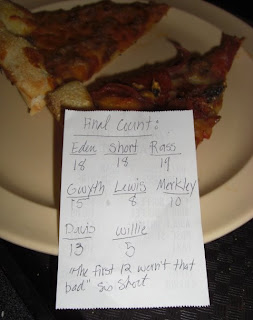 Final Count:
Eden Short Rass
18 18 14
Gwyth Lewis Merkley
15 8 10
Davis Willie
13 5
"The first 12 weren't that
bad." Sis. Short